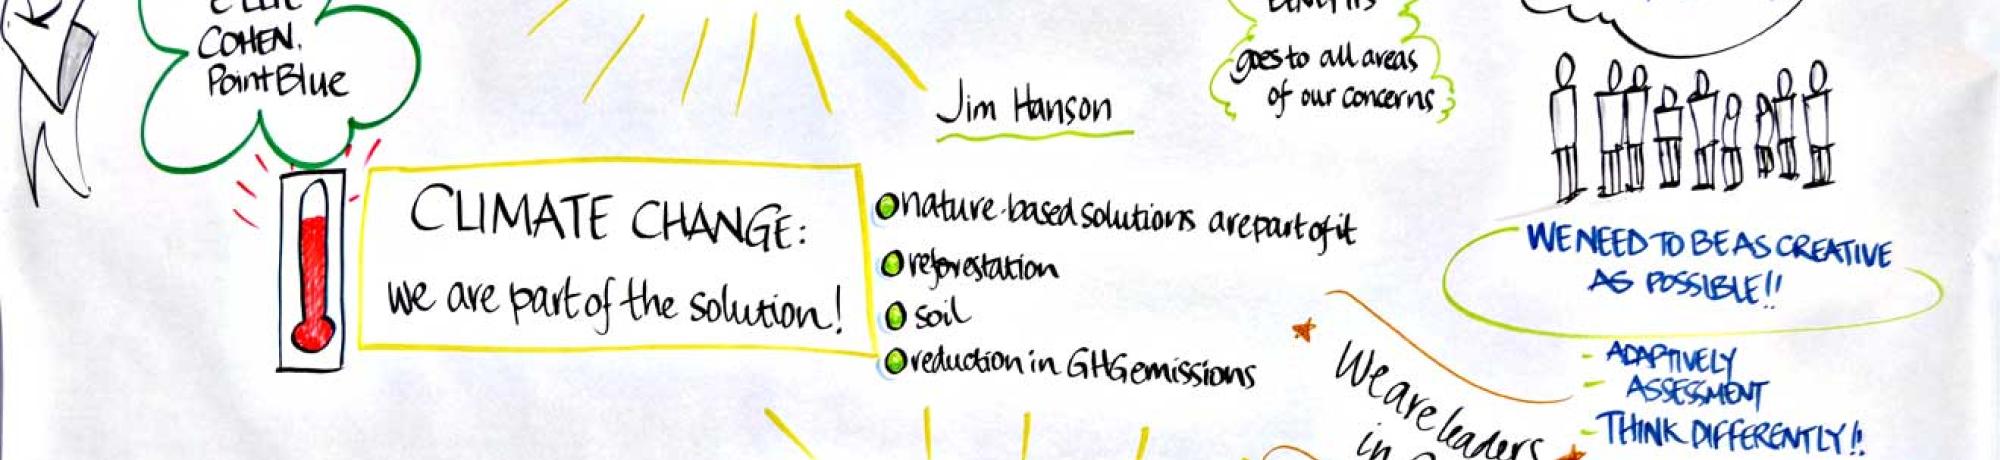 COHEN.
Point Blue
Jim Hanson
BENEFITS
goes to all areas
of our concerns
CLIMATE CHANGE:
we are part of the solution!
nature-based solutions are part of it
reforestation
soil
reduction in GHG emissions
WE NEED TO BE AS CREATIVE
AS POSSIBLE!!
- ADAPTIVELY
- ASSESSMENT
- THINK DIFFERENTLY!!
We are leaders
in